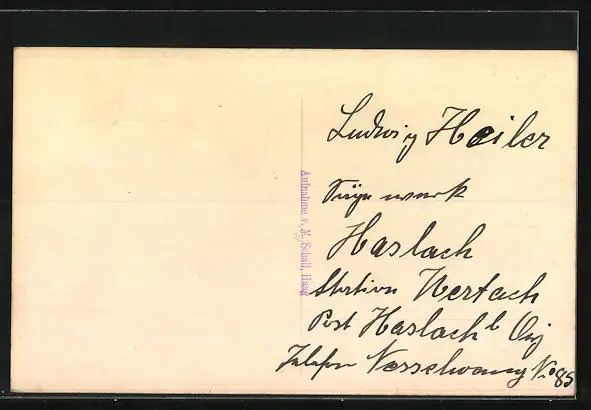 Ludwig Heiler
Sägewerk
Haslach
Station Wertach
Post Haslach b Oy
Telefon Nesselwang No 85
Aufnahme v. M. Schall, Haag